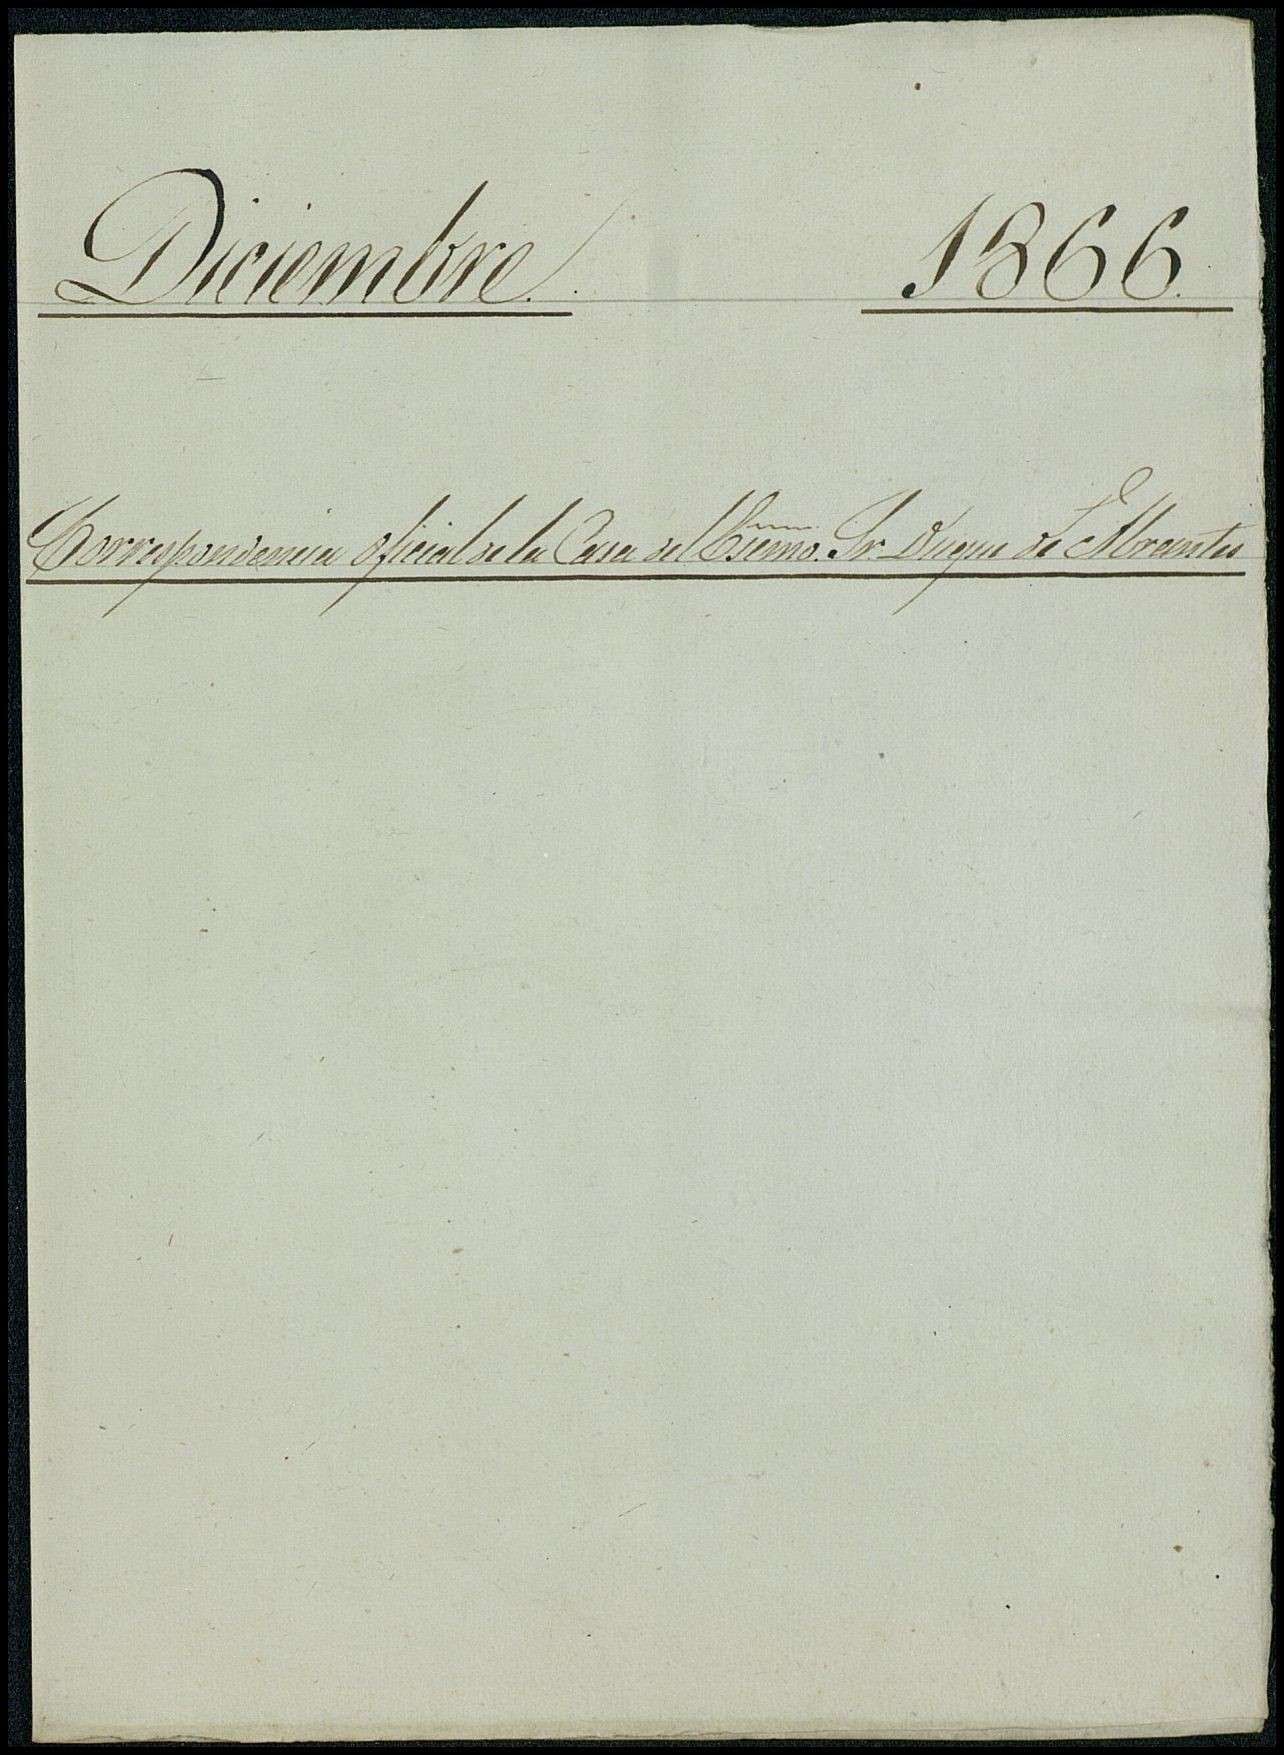 Diciembre. 1866.
Correspondencia oficial de la Casa del Escmo. Sr. Duque de Abrantes